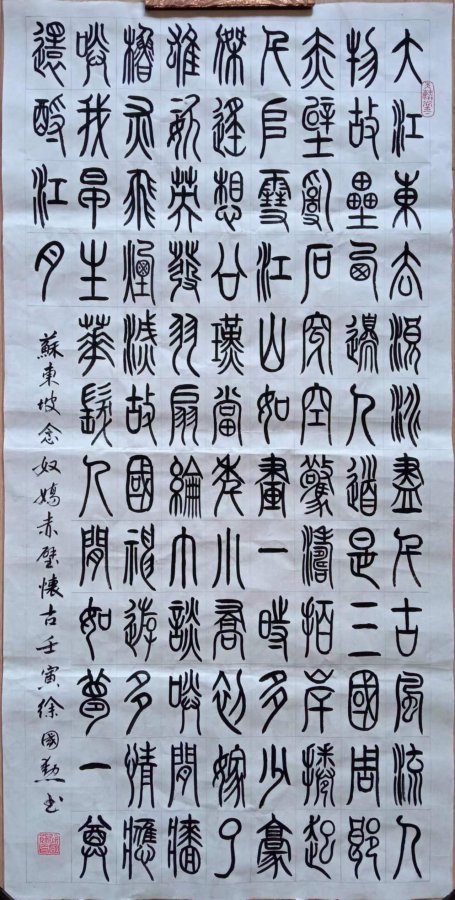 大江東去浪淘盡千古風流人
物故壘西邊人道是三國周郎
赤壁亂石穿空驚濤拍岸捲起
千堆雪江山如畫一時多少豪
傑遙想公瑾當年小喬初嫁了
雄姿英發羽扇綸巾談笑間檣
櫓灰飛煙滅故國神遊多情應
笑我早生華髮人間如夢一尊
還酹江月
蘇東坡念奴嬌赤壁懷古壬寅徐國勳书